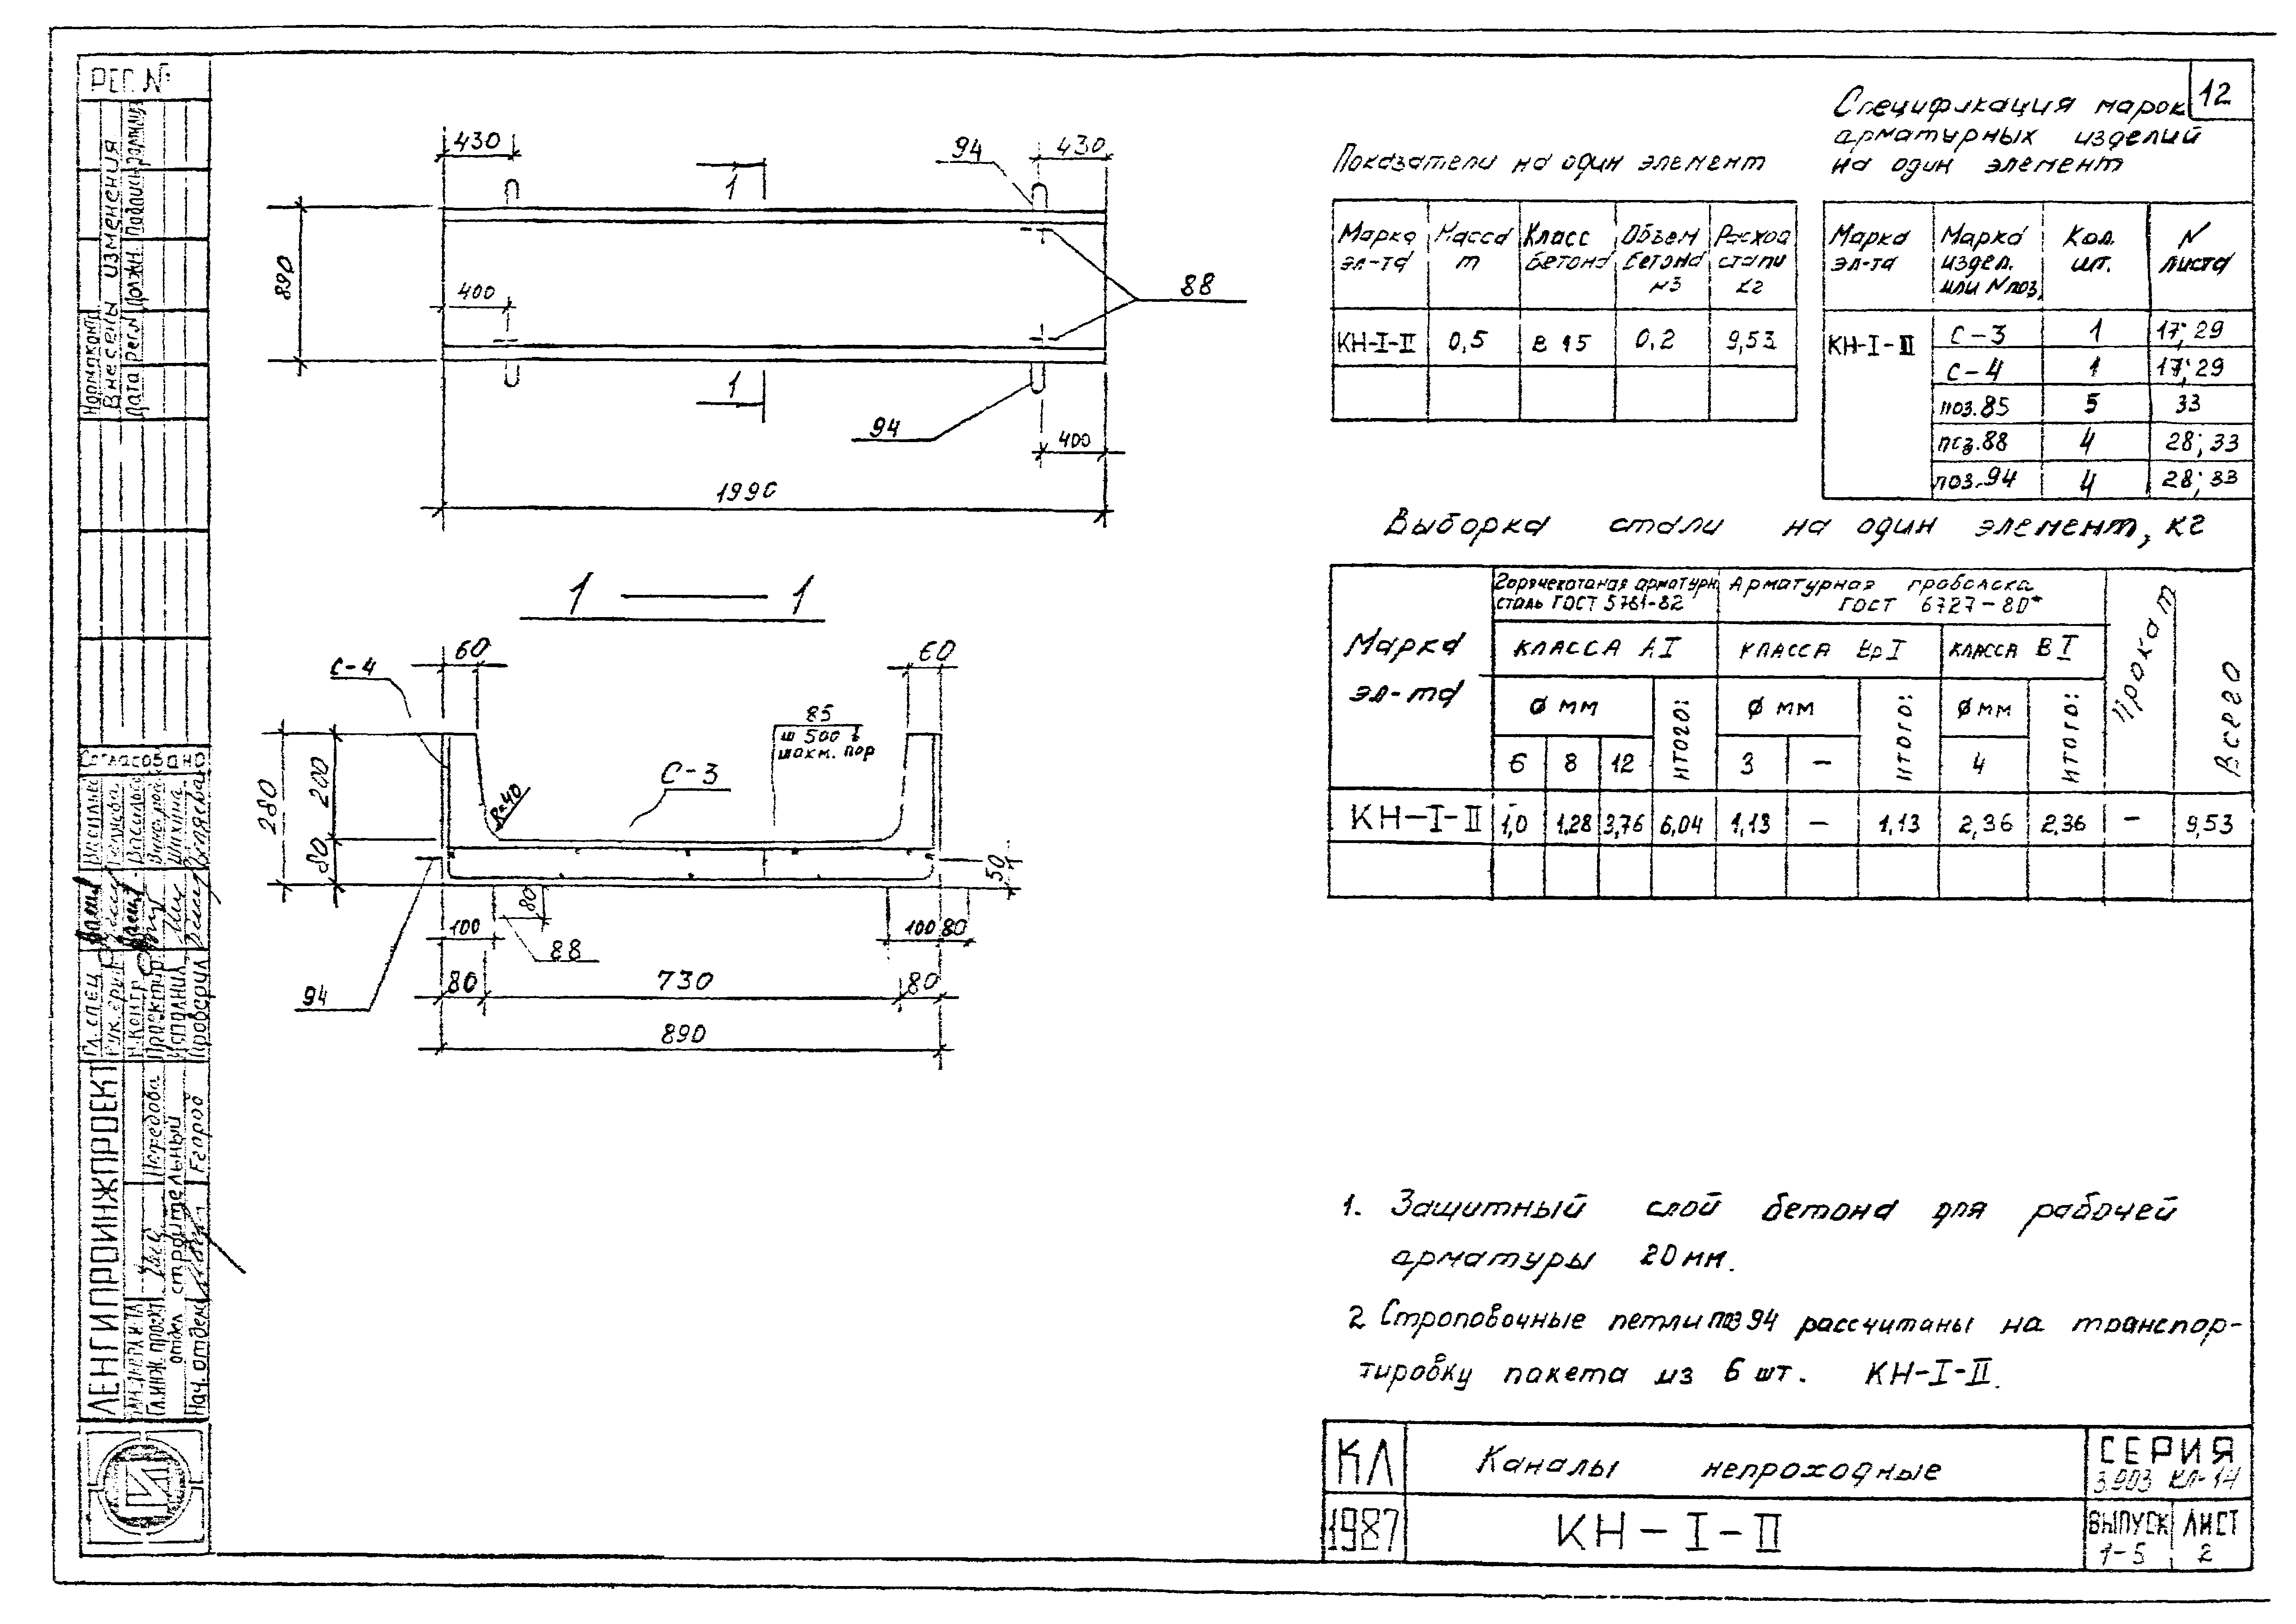 12
РЕГ. №
Внесены изменения
Нормоконт.
Дата
рег.№
Должн.
Подпись
Согласовано
Гл. спец.
Н. контр.
Исполнил
Проверил
Шихина
ЛЕНГИПРОИНЖПРОЕКТ
отдел строительный
Нач. отдела
Егоров
430
94
430
1
890
400
88
1
94
400
1990
1 — 1
60
60
С-4
85
ш 500 в
шахм. пор
С-3
R=40
280
200
80
50
80
100
88
100
80
94
80
730
80
890
Показатели на один элемент
Марка эл-та
Масса т
Класс бетона
Объем бетона м3
Расход стали кг
КН-I-II
0,5
В 15
0,2
9,53
Спецификация марок
арматурных изделий
на один элемент
Марка эл-та
Марка издел. или № поз.
Кол. шт.
N листа
КН-I-II
С-3 1 17; 29
С-4 1 17; 29
поз.85 5 33
поз.88 4 28; 33
поз.94 4 28; 33
Выборка стали на один элемент, кг
Марка эл-та
Горячекатаная арматурн
сталь ГОСТ 5781-82
Арматурная проволока
ГОСТ 6727-80*
Прокат
Всего
КЛАССА АI
КЛАССА ВрI
КЛАССА ВI
Ø мм
ИТОГО:
Ø мм
ИТОГО:
Ø мм
ИТОГО:
6 8 12 3 — 4
КН-I-II 1,0 1,28 3,76 6,04 1,13 — 1,13 2,36 2,36 — 9,53
1. Защитный слой бетона для рабочей
арматуры 20мм.
2 Строповочные петли поз 94 рассчитаны на транспор-
тировку пакета из 6 шт. КН-I-II.
КЛ
Каналы непроходные
СЕРИЯ
3.903 КЛ-14
1987
КН-I-II
ВЫПУСК
1-5
ЛИСТ
2